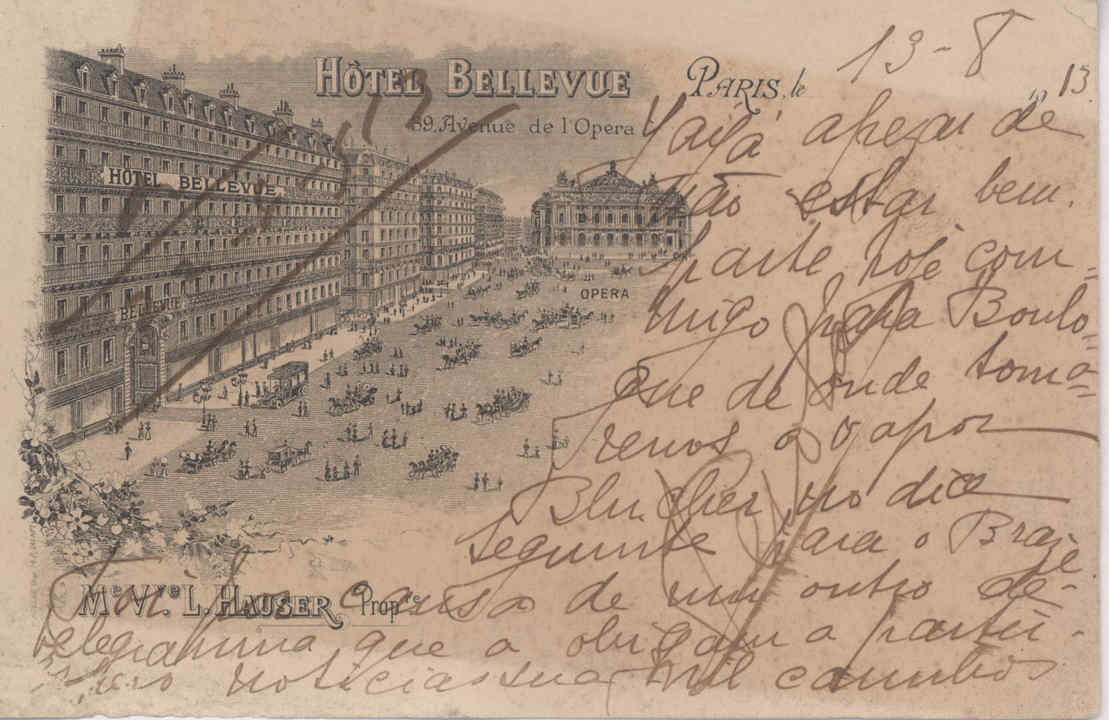 HÔTEL BELLEVUE
39, Avenue de l'Opera
PARIS, le 13-8 1913.
HÔTEL BELLEVUE
BELLEVUE
OPERA
Yaiá apezar de
não estar bem.
parte hoje com-
migo para Boulo-
gne de onde toma-
remos o vapor
Blucher no dia
seguinte para o Brazil
Me Vve L. HAUSER Propre
causa de um outro
telegramma que a obrigam a partir.
noticias sua mil carinhos